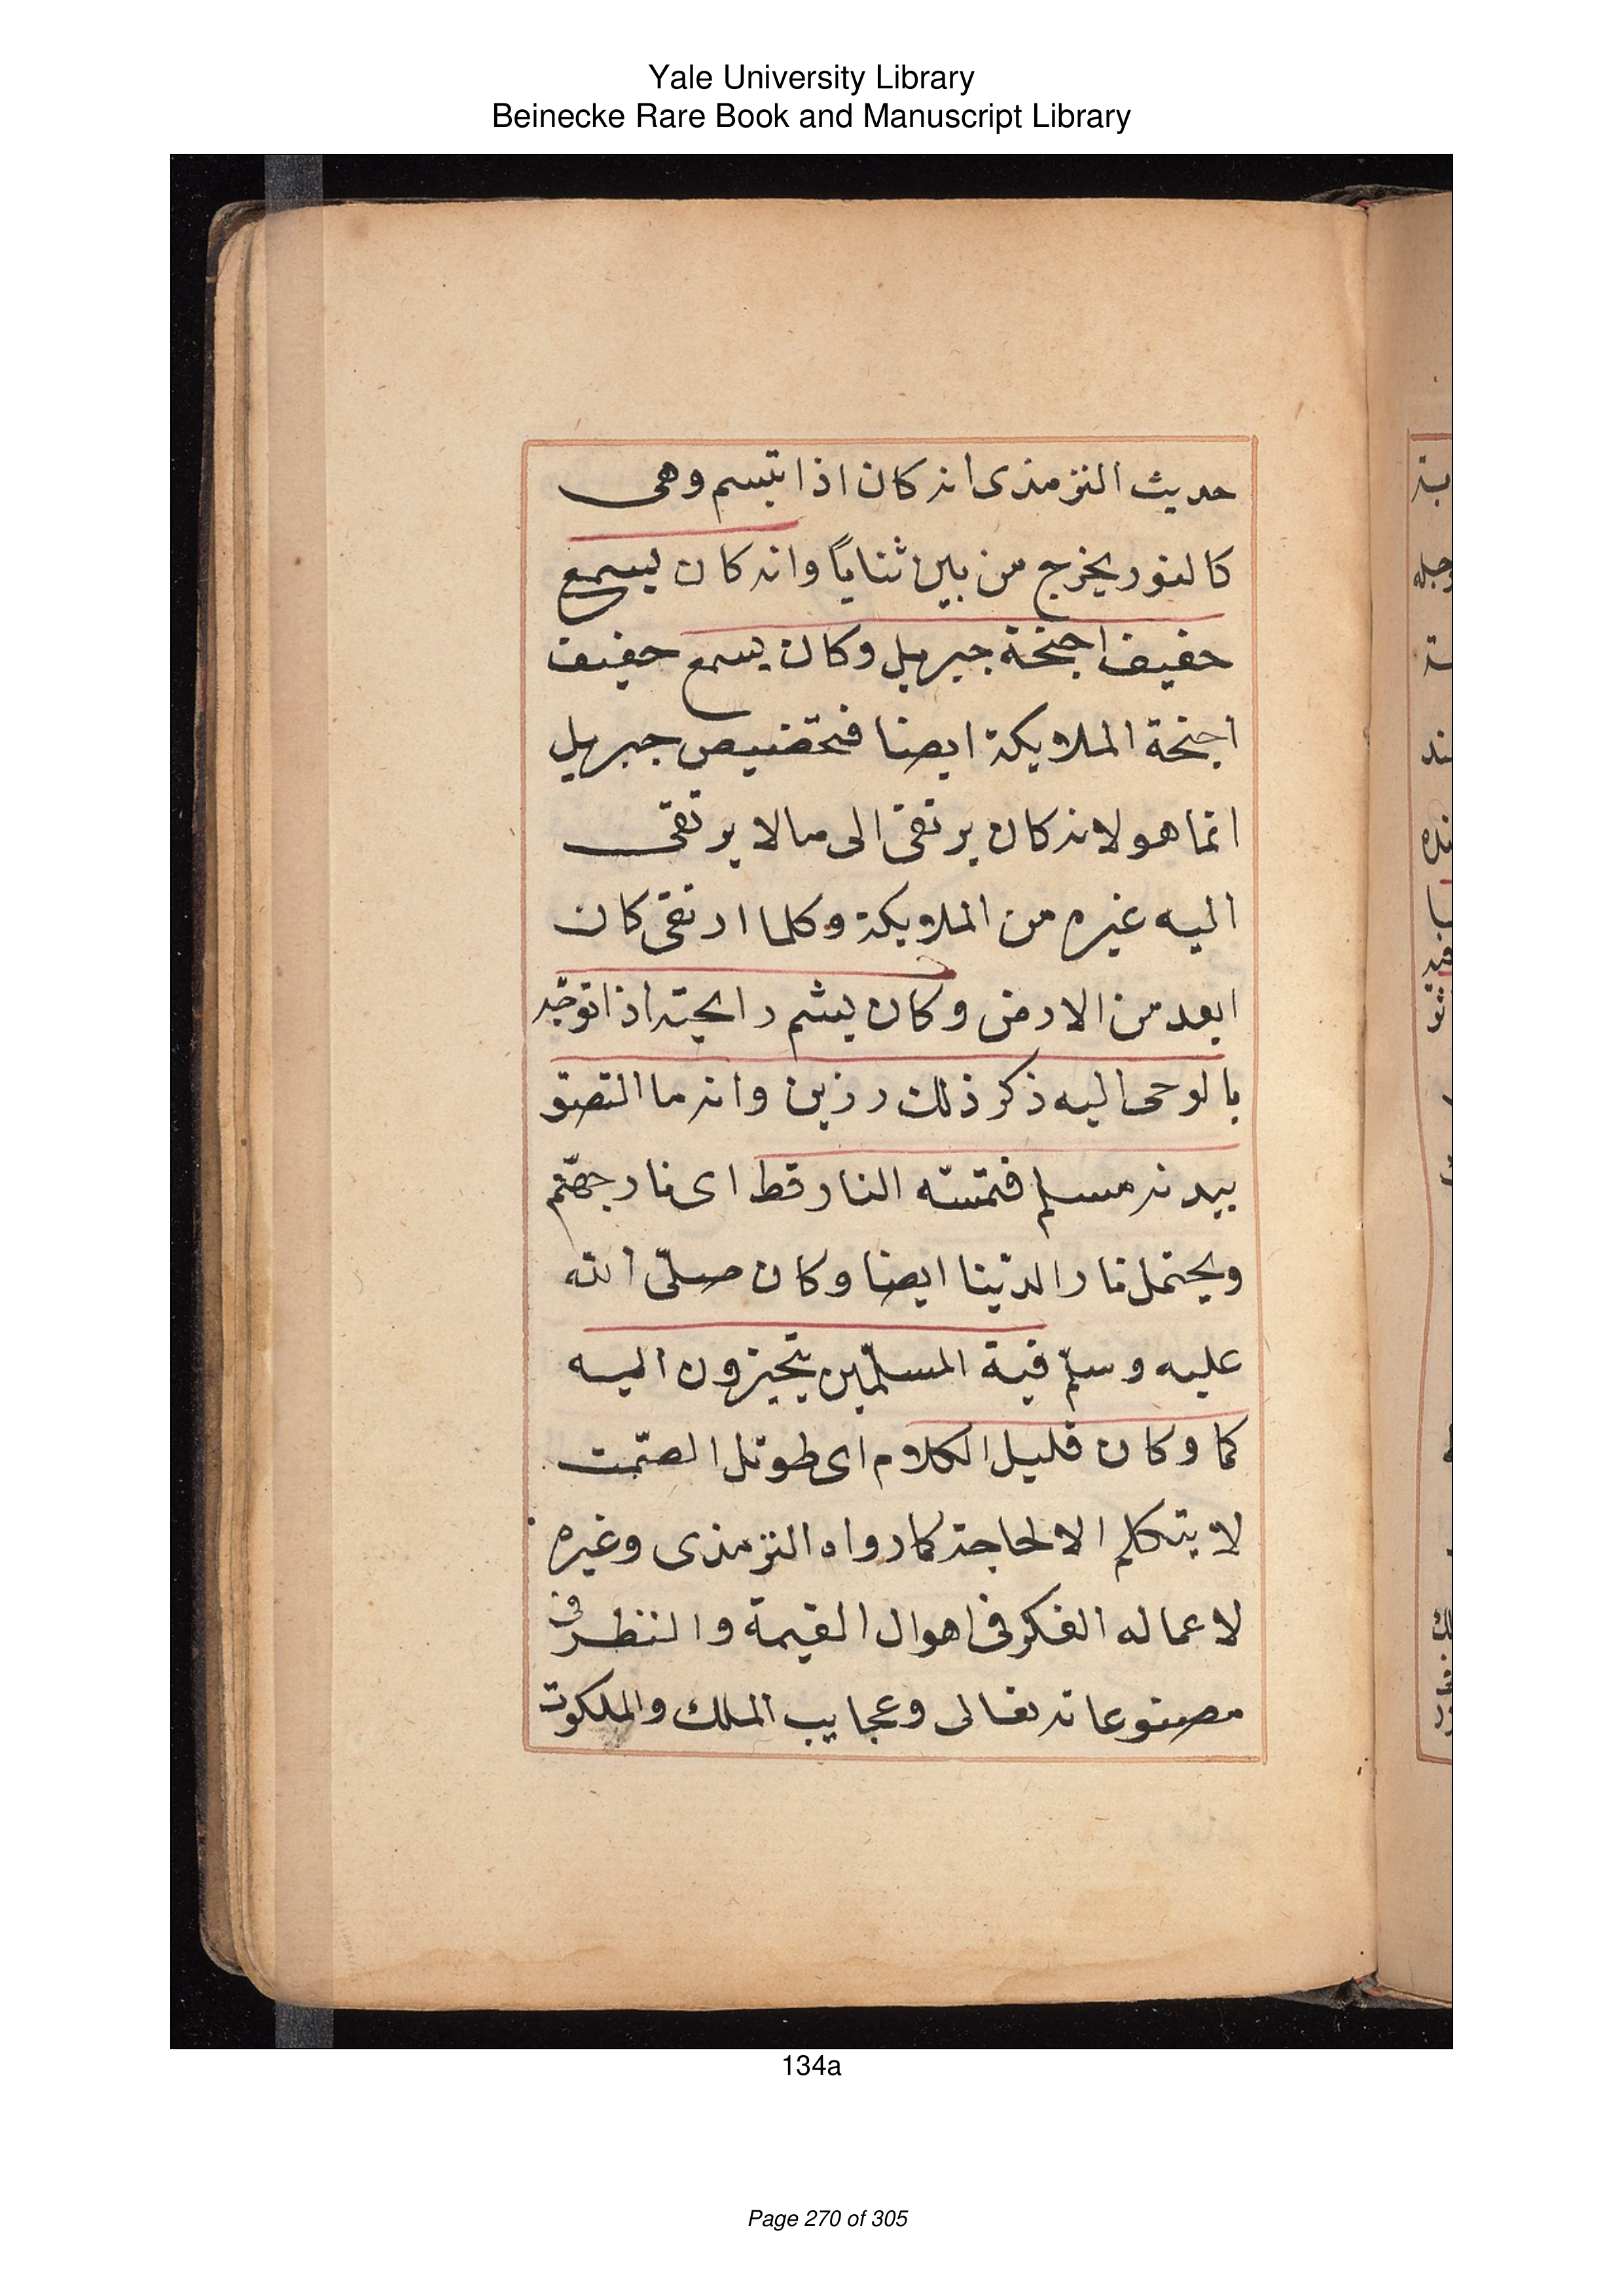 Yale University Library
Beinecke Rare Book and Manuscript Library
حديث الترمذى انه كان اذا تبسم وهى
كالنور يخرج من بين ثناياً وانه كان يسمع
حفيف اجنحة جبريل وكان يسمع حفيف
اجنحة الملايكة ايضا فتحضيص جبريل
انما هو لانه كان يرتقى الى مالا يرتقى
اليه غيره من الملايكة وكلما ارتقى كان
ابعد من الارض وكان يشم رايحته اذا توجّه
بالوحى اليه ذكر ذلك رزين وانه ما التصق
ببدنه مسلم فتمسّه النار قط اى نار جهنّم
ويحتمل نار الدنيا ايضا وكان صلّى الله
عليه وسلّم فية المسلمين يتحيزون اليه
كما وكان قليل الكلام اى طويل الصّمت
لا يتكلم الا لحاجة كما رواه الترمذى وغيره
لاعماله الفكر فى اهوال القيمة والنظر فى
مصنوعاته تعالى وعجايب الملك والملكوت
134a
Page 270 of 305